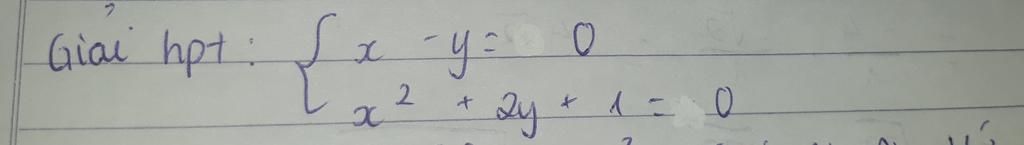 Giải hpt : { x - y = 0
x² + 2y + 1 = 0